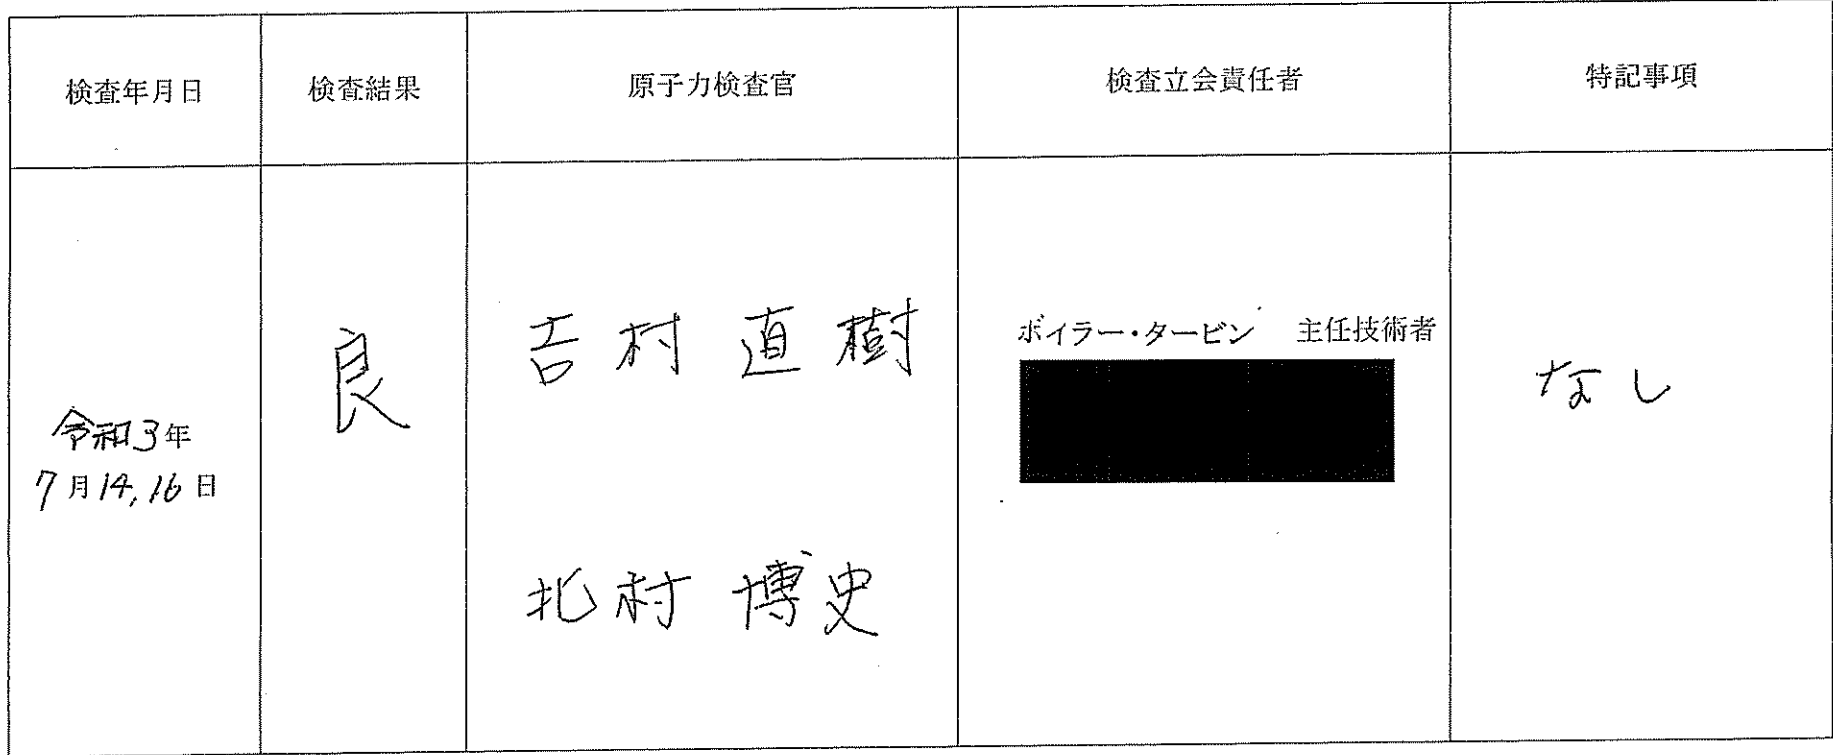 検査年月日 検査結果 原子力検査官 検査立会責任者 特記事項
令和3年
7月14,16日
良
吉村 直樹
北村 博史
ボイラー・タービン 主任技術者
なし